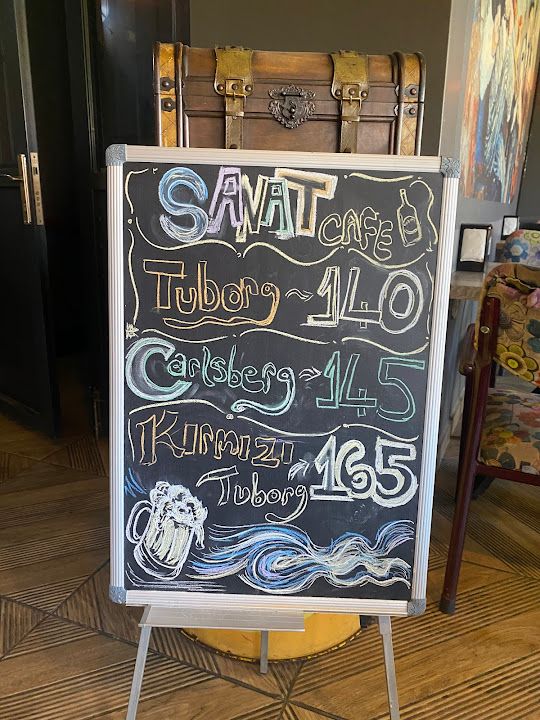 SANAT CAFE
Tuborg ~ 140
Carlsberg ~ 145
KIRMIZI
Tuborg ~ 165